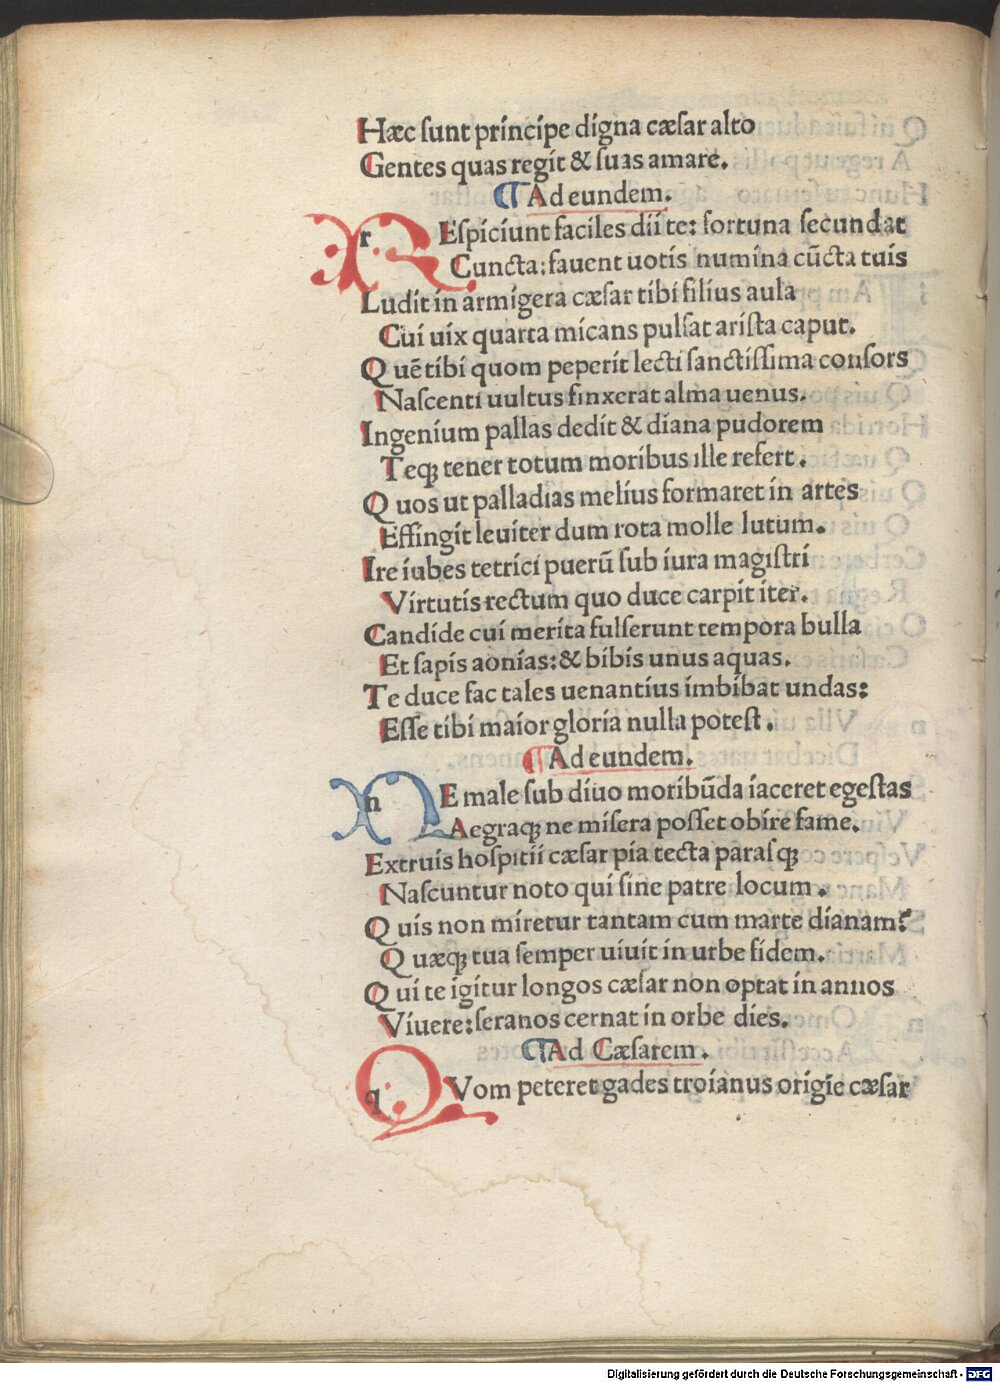 Hæc sunt príncípe dígna cæsar alto
Gentes quas regít & suas amare.
¶ Ad eundem.
REspíciunt faciles díí te: fortuna secundat
Cuncta: fauent uotís numína cūcta tuís
Ludít ín armígera cæsar tíbí fílíus aula
Cuí uíx quarta mícans pulsat arísta caput.
Quē tíbí quom peperít lectí sanctíssíma consors
Nascentí uultus fínxerat alma uenus.
Ingeníum pallas dedít & díana pudorem
Teqꝫ tener totum moríbus ílle refert.
Quos ut palladías melíus formaret ín artes
Effíngít leuíter dum rota molle lutum.
Ire íubes tetrící puerū sub íura magístrí
Vírtutís rectum quo duce carpít íter.
Candíde cuí meríta fulserunt tempora bulla
Et sapís aonías: & bíbís unus aquas.
Te duce fac tales uenantíus ímbíbat undas:
Esse tíbí maíor glória nulla potest.
¶ Ad eundem.
NE male sub díuo moríbūda íaceret egestas
Aegraqꝫ ne mísera posset obíre fame.
Extruís hospítíí cæsar pía tecta parasqꝫ
Nascuntur noto quí síne patre locum.
Quís non míretur tantam cum marte díanam?
Quæqꝫ tua semper uíuít ín urbe fídem.
Quí te ígítur longos cæsar non optat ín annos
Víuere: seranos cernat ín orbe díes.
¶ Ad Cæsarem.
QVom peteret gades troíanus orígíe cæsar
Digitalisierung gefördert durch die Deutsche Forschungsgemeinschaft - DFG